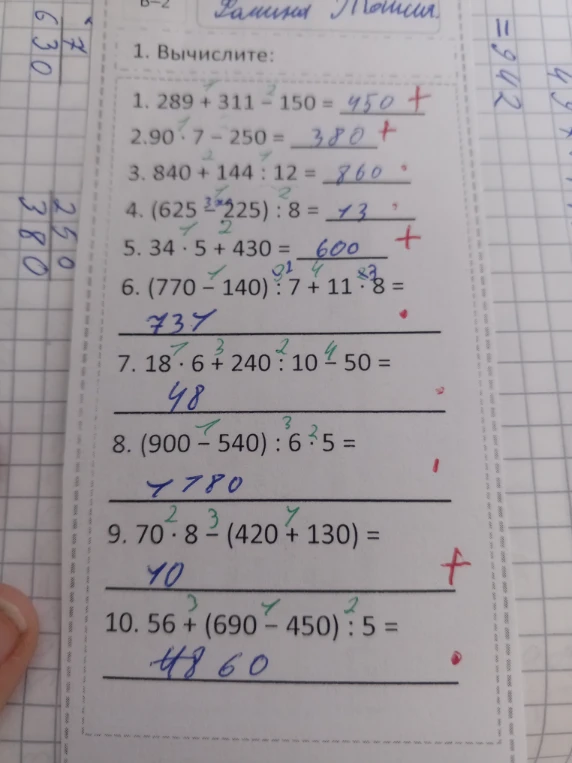 В-2
1. Вычислите:
1. 289 + 311 − 150 = 450 +
2.90 · 7 − 250 = 380 +
3. 840 + 144 : 12 = 860
4. (625 − 225) : 8 = 13
5. 34 · 5 + 430 = 600 +
6. (770 − 140) : 7 + 11 · 8 =
737
7. 18 · 6 + 240 : 10 − 50 =
48
8. (900 − 540) : 6 · 5 =
1780
9. 70 · 8 − (420 + 130) =
10 +
10. 56 + (690 − 450) : 5 =
4860
7
630
250
380
=942